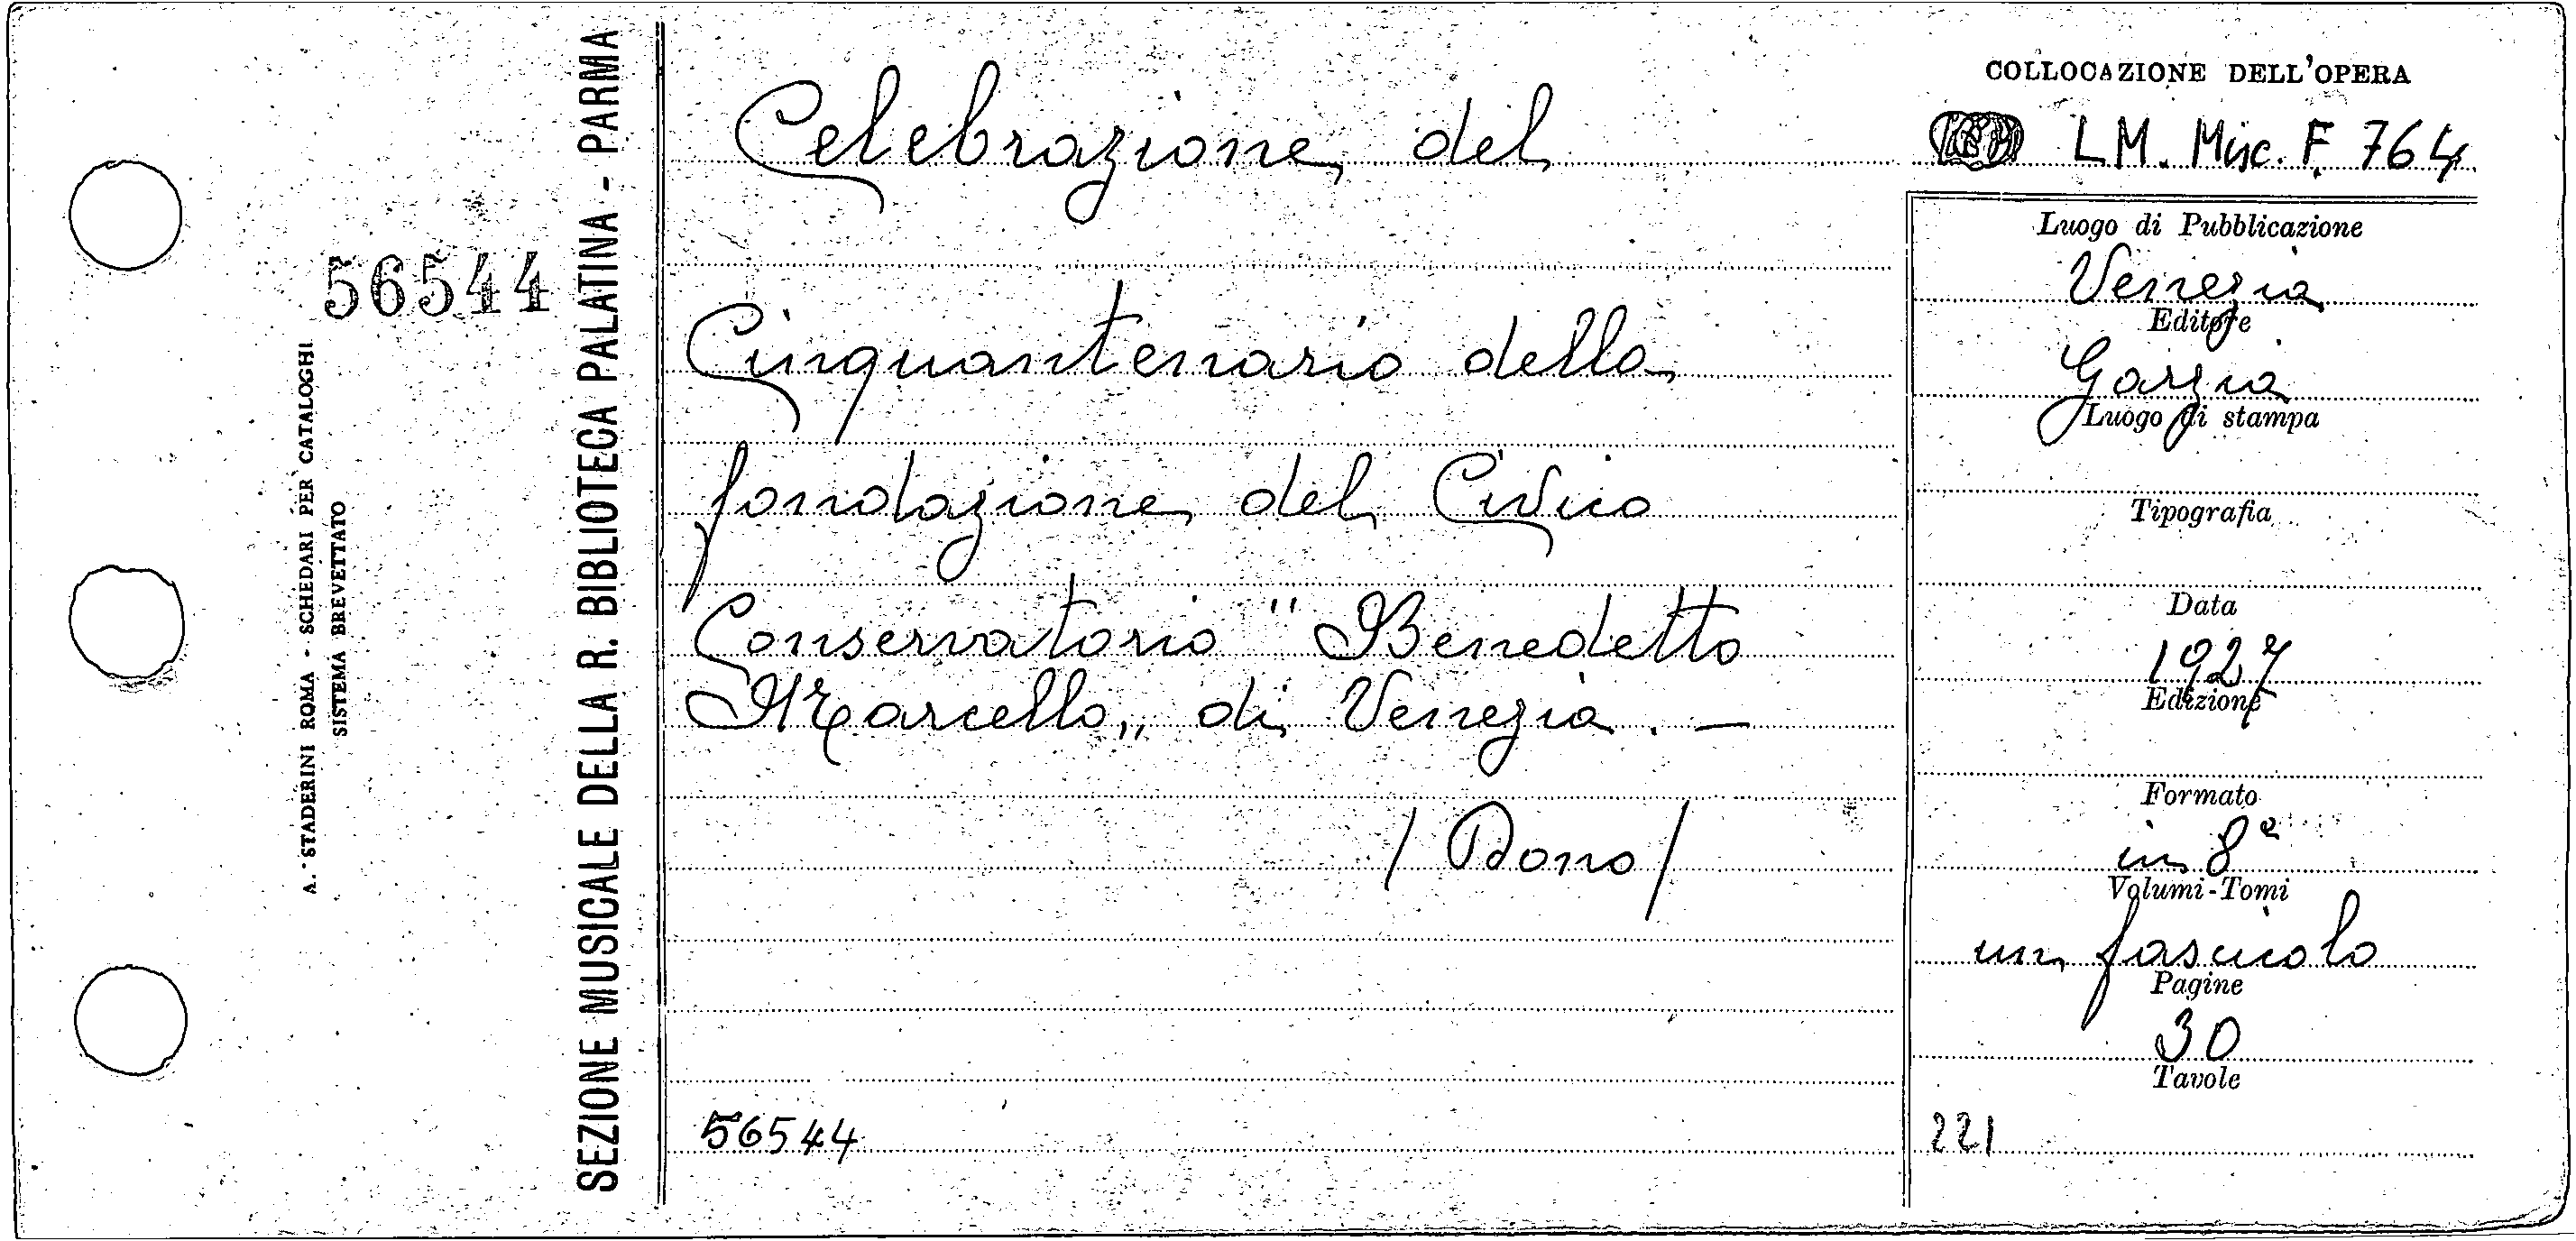 56544
A. STADERINI ROMA - SCHEDARI PER CATALOGHI
SISTEMA BREVETTATO
SEZIONE MUSICALE DELLA R. BIBLIOTECA PALATINA - PARMA
Celebrazione del
Cinquantenario della
fondazione del Civico
Conservatorio "Benedetto
Marcello„ di Venezia. —
/Dono/
56544
COLLOCAZIONE DELL'OPERA
LM. Misc. F. 764
Luogo di Pubblicazione
Venezia
Editore
Garzia
Luogo di stampa
Tipografia
Data
1927
Edizione
Formato
in 8°
Volumi-Tomi
un fascicolo
Pagine
30
Tavole
221